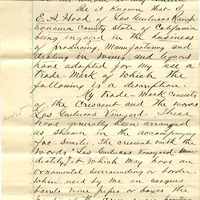 Be it Known That I
E. A. Hood of Los Guilicos Ranch
Sonoma County State of California
being engaged in the business
of producing, Manufacturing and
dealing in Wines and liquors
have adopted for my use a
Trade-Mark of Which the
following is a description.
My Trade-Mark Consists
of the Crescent and the words
Los Guilicos Vineyard. These
have generally been arranged
as shown in the accompanying
fac-simile. The crescent with the
Words "Los Guilicos Vineyard"
it which may have an
ornamental surrounding or border.
When used by me on casques
barrels wine pipes or boxes the